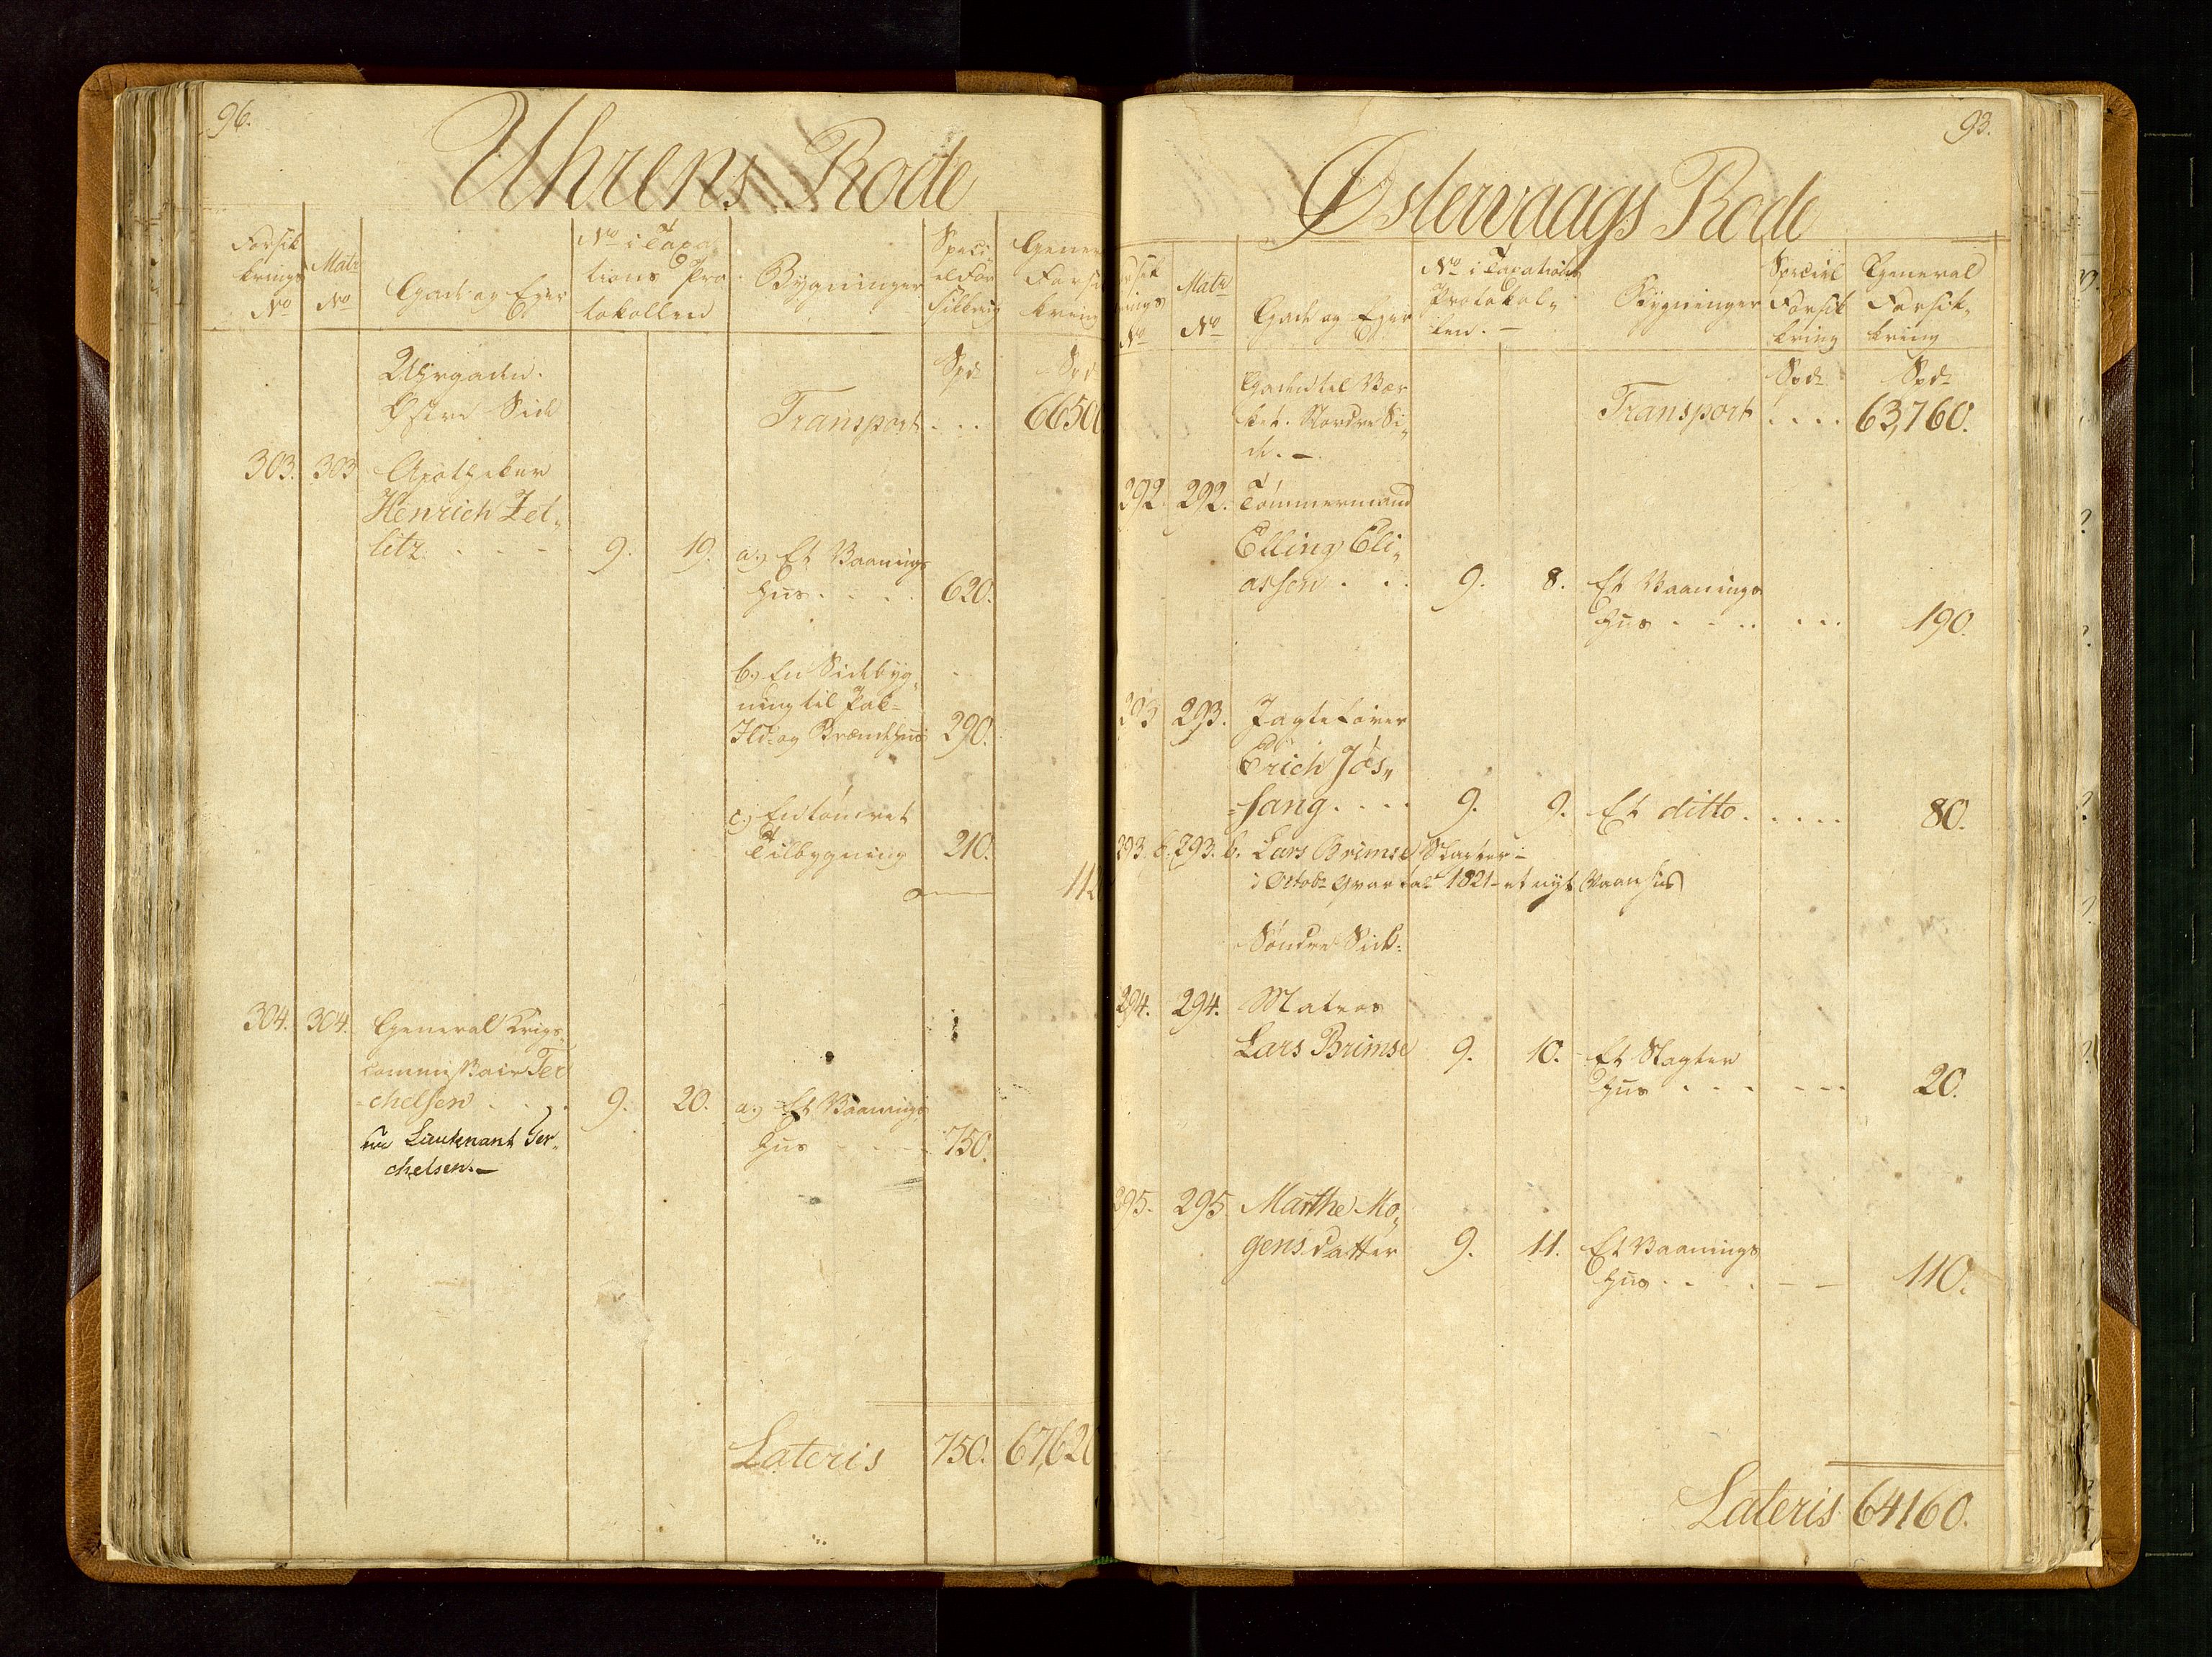 96.
Uhrens Rode
Forsik
krings
No
Matr
No
Gade og Eger
No i Taxa
tions Pro
tokollen
Bygninger
Speci
el For
sikring
Gener
Forsi
kring
Uhrgaden.
Østre Side
Spd
Spd
Transport . . .
6650
303. 303 Apotheker
Henrich Zet„
litz . . - 9. 19. a.) Et Vaanings
hus . . . . 620.
b.) En Sidebyg„
ning til Pak-
Ild- og Brændehus 290.
c.) En tømret
Tilbygning 210.
112
304. 304. General Krigs„
commissair Ter
-chelsen . . . 9. 20. a.) Et Vaanings
hus - . - - 750.
nu Lieutenant Ter„
chelsen.-
Lateris 750. 67,620
93.
Østervaags Rode
rsik
rings
No
Matr
No
Gade og Eger
No i Taxations
Protokol„
len. -
Bygninger
Special
Forsik
kring
General
Forsik„
kring
Gaden til Vær
ket. Nordre Si„
de. -
Spd
Spd
Transport . . . . 63,760.
292. 292. Tømmermand
Elling Eli„
assen . . . 9. 8. Et Vaanings
hus . - . . . . . 190.
293 293. Jagtefører
Erich Jøs„
-sang . . . . 9. 9. Et ditto . . . . . 80.
293. b. 293. b. Lars Brimse
i Octobr Qvartal 1821 - et nyt Vaanhus
Søndre Side.
294. 294. Matros
Lars Brimse 9. 10. Et Slagter
hus . - - - - - - 20.
295. 295 Marthe Mo„
gensdatter 9. 11. Et Vaanings
hus . - . . - - 110.
Lateris 64160.